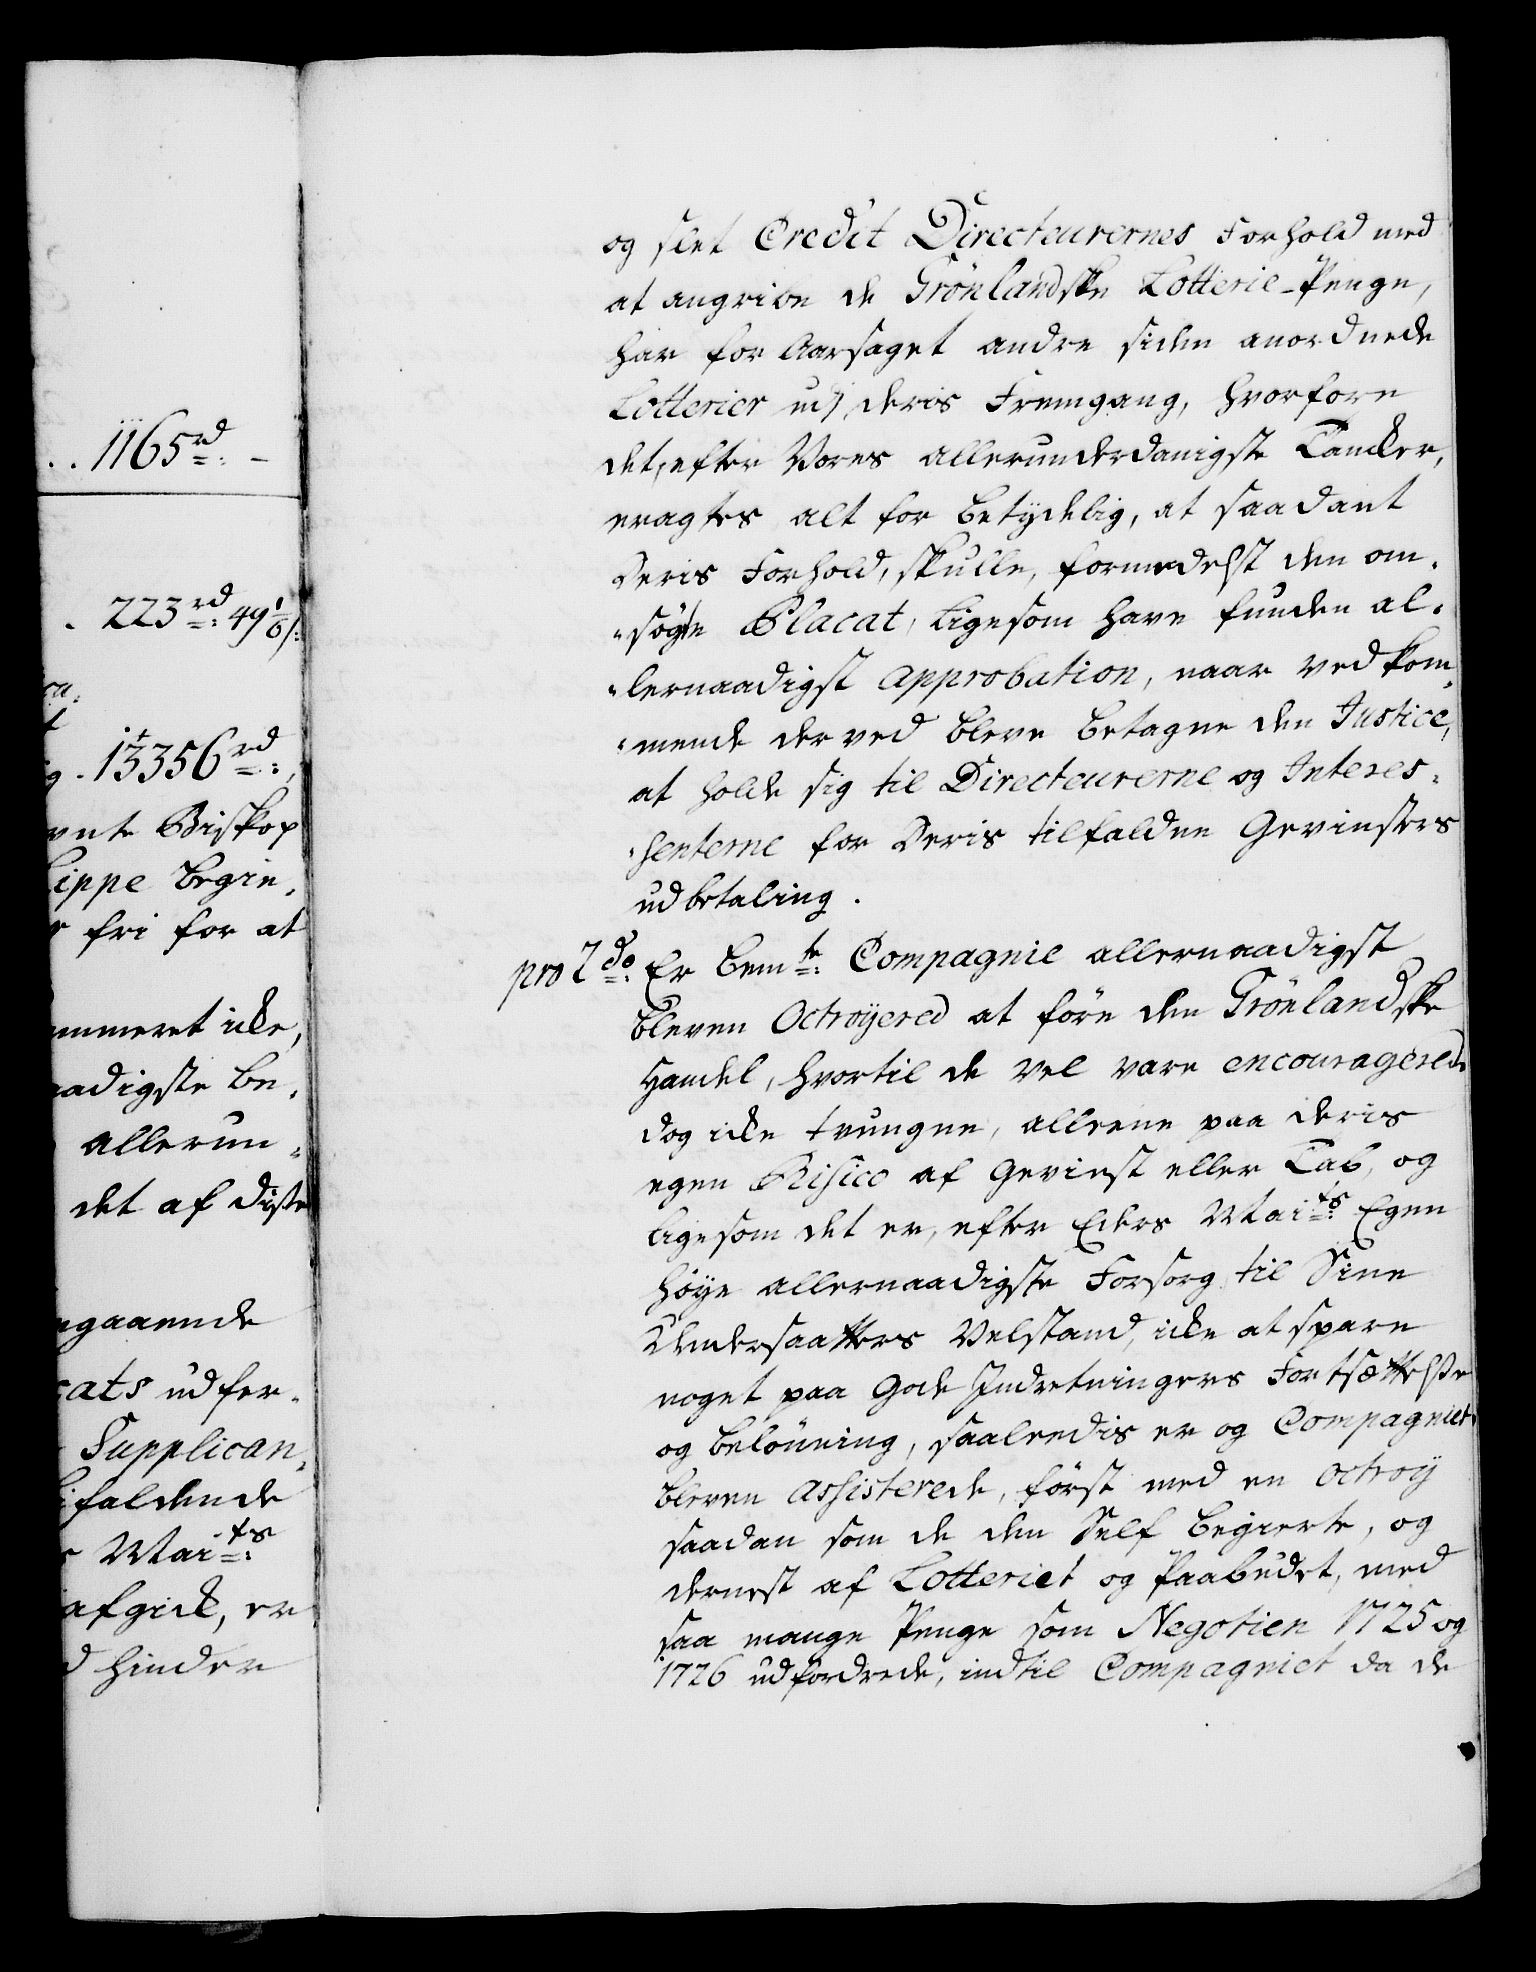 .. 1165 rd -
. 223 rd: 49 1/6 s:
ra,
t
g. 1 t 3356 rd:
vnte Biskop
Lippe begie,
r fri for at
ummeret icke,
aadigste be,
allerun,
det af diste
ngaaende
cats udfer,
Supplican,
ifaldende
s Mai ts:
afgick, er
d hinder
og slet Credit Directeurernes Forhold med
at angribe de Grönlandske Lotterie-Penge,
har for Aarsaget andre siden anordnede
Lotterier udj deris Fremgang, hvorfore
det, efter Vores allerunderdanigste Tancker,
eragtes alt for betydelig, at saadant
Deris Forhold, skulle, formedelst den om,
„søgte Placat, ligesom have funden al,
„lernaadigst approbation, naar vedkom,
„mende derved bleve betagne den Justice,
at holde sig til Directeurerne og Interes,
„senterne for Deris tilfaldne Gevinsters
udbetaling.
pro 2do: Er bemte: Compagnie allernaadigst
bleven Octroyered at före den Grönlandske
Handel, hvortil de vel vare encouragerede
dog icke tvungne, alleene paa deris
egen Risico af Gevinst eller Tab, og
ligesom det er, efter Eders Maits: Egen
höye allernaadigste Forsorg til Sine
Undersaatters Velstand, icke at spare
noget paa Gode Indretningers Fortsættelse
og belönning, saaleedis er og Compagniet
bleven assisterede, först med en Octroy
saadan som de den Self begierte, og
dernest af Lotteriet og Paabudet, med
saa mange Penge som Negotien 1725 og
1726 udfordrede, indtil Compagniet da de